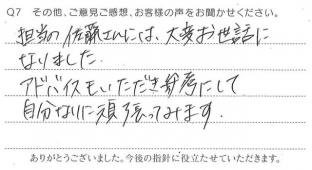 Q7 その他、ご意見ご感想、お客様の声をお聞かせください。
担当の佐藤さんには、大変お世話に
なりました。
アドバイスもいただき参考にして
自分なりに頑張ってみます。
ありがとうございました。今後の指針に役立たせていただきます。